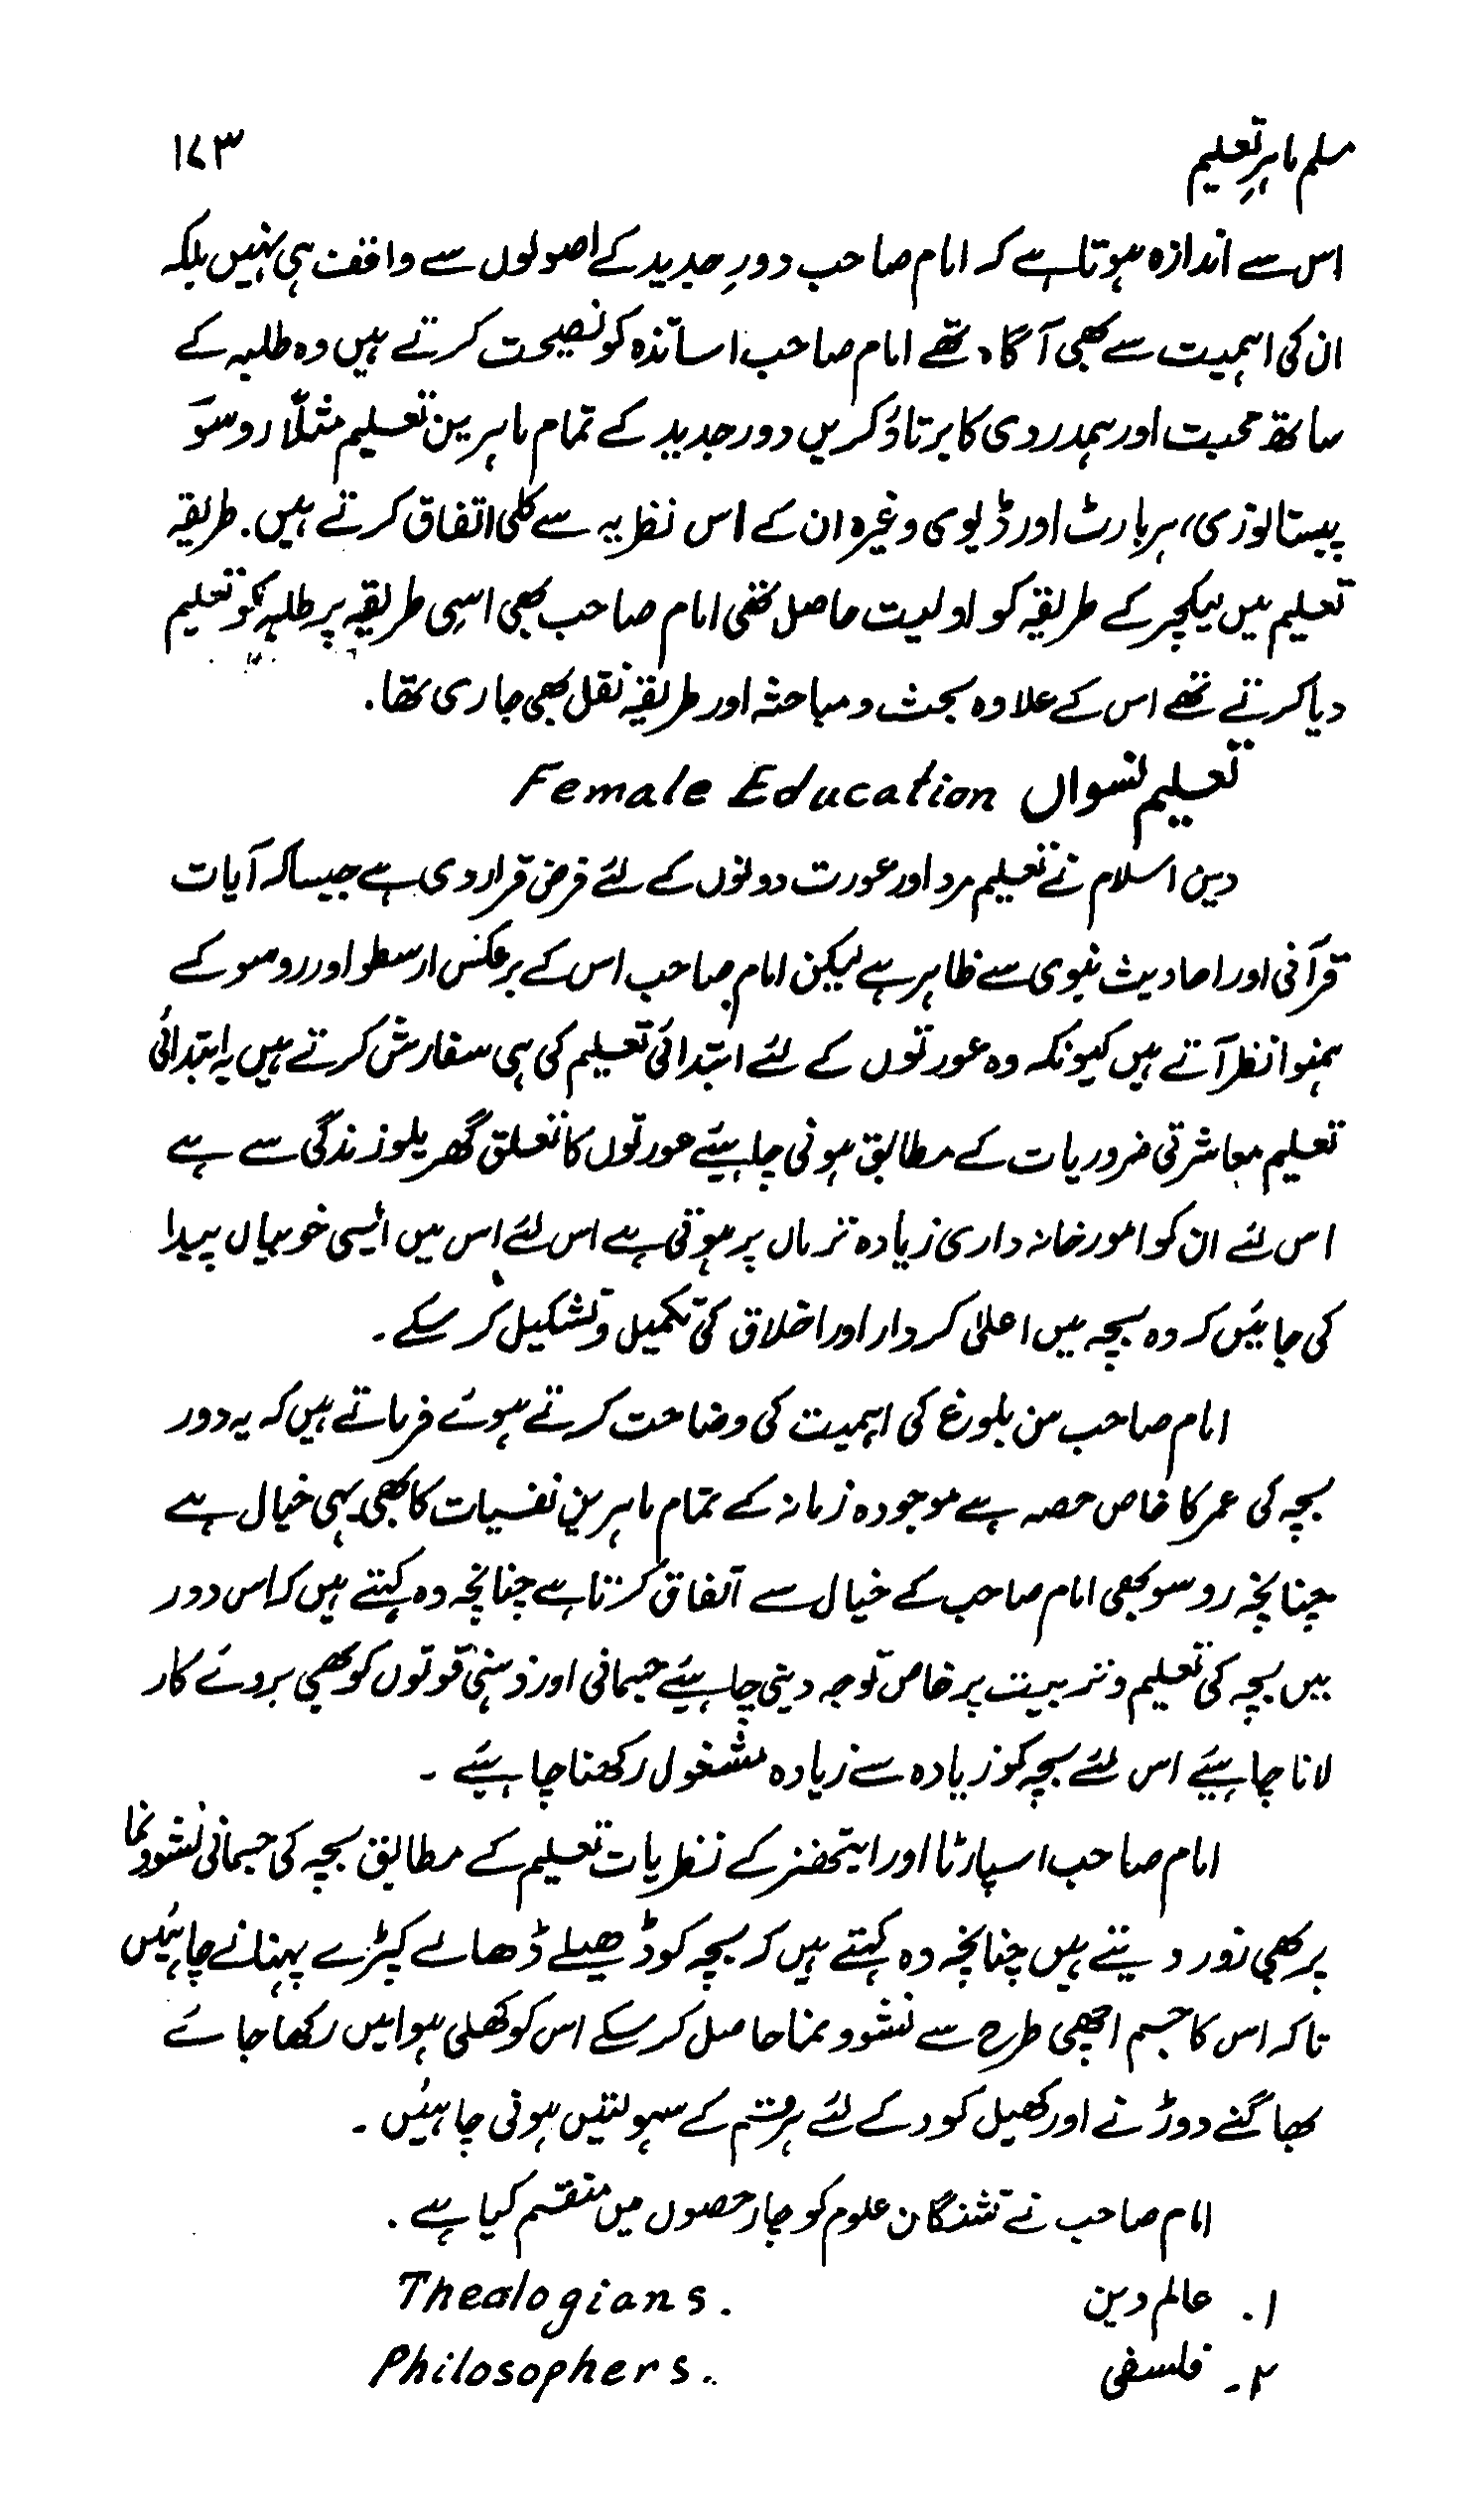 مسلم ماہرِ تعلیم ۱۷۳
اس سے اندازہ ہوتا ہے کہ امام صاحب دورِ جدید کے اصولوں سے واقف ہی نہیں بلکہ
ان کی اہمیت سے بھی آگاہ تھے امام صاحب اساتذہ کو نصیحت کرتے ہیں وہ طلبہ کے
ساتھ محبت اور ہمدردی کا برتاؤ کریں دور جدید کے تمام ماہرین تعلیم مثلاً روسو
پیستالوزی، ہربارٹ اور ڈیوی وغیرہ ان کے اس نظریہ سے کلی اتفاق کرتے ہیں۔ طریقہ
تعلیم میں لیکچر کے طریقہ کو اولیت حاصل تھی امام صاحب بھی اسی طریقہ پر طلبہ کو تعلیم
دیا کرتے تھے اس کے علاوہ بحث و مباحثہ اور طریقہ نقل بھی جاری تھا۔
تعلیم نسواں Female Education
دین اسلام نے تعلیم مرد اور عورت دونوں کے لئے فرض قرار دی ہے جیسا کہ آیات
قرآنی اور احادیث نبوی سے ظاہر ہے لیکن امام صاحب اس کے برعکس ارسطو اور روسو کے
ہمنوا نظر آتے ہیں کیونکہ وہ عورتوں کے لئے ابتدائی تعلیم کی ہی سفارش کرتے ہیں یہ ابتدائی
تعلیم معاشرتی ضروریات کے مطابق ہونی چاہیئے عورتوں کا تعلق گھریلو زندگی سے ہے
اس لئے ان کو امور خانہ داری زیادہ تر ماں پر ہوتی ہے اس لئے اس میں ایسی خوبیاں پیدا
کی جائیں کہ وہ بچہ میں اعلیٰ کردار اور اخلاق کی تکمیل و تشکیل کر سکے۔
امام صاحب سن بلوغ کی اہمیت کی وضاحت کرتے ہوئے فرماتے ہیں کہ یہ دور
بچہ کی عمر کا خاص حصہ ہے موجودہ زمانہ کے تمام ماہرین نفسیات کا بھی یہی خیال ہے
چنانچہ روسو بھی امام صاحب کے خیال سے اتفاق کرتا ہے چنانچہ وہ کہتے ہیں کہ اس دور
میں بچہ کی تعلیم و تربیت پر خاص توجہ دینی چاہیئے جسمانی اور ذہنی قوتوں کو بھی بروئے کار
لانا چاہیئے اس لئے بچہ کو زیادہ سے زیادہ مشغول رکھنا چاہیئے ۔
امام صاحب اسپارٹا اور ایتھنز کے نظریات تعلیم کے مطابق بچہ کی جسمانی نشوونما
پر بھی زور دیتے ہیں چنانچہ وہ کہتے ہیں کہ بچہ کو ڈھیلے ڈھالے کپڑے پہنانے چاہئیں
تاکہ اس کا جسم اچھی طرح سے نشوونما حاصل کر سکے اس کو کھلی ہوا میں رکھا جائے
بھاگنے دوڑنے اور کھیل کود کے لئے ہر قسم کے سہولتیں ہونی چاہئیں ۔
امام صاحب نے تشنگان علوم کو چار حصوں میں منقسم کیا ہے ۔
۱۔ عالم دین Thealogians.
۲۔ فلسفی Philosophers.